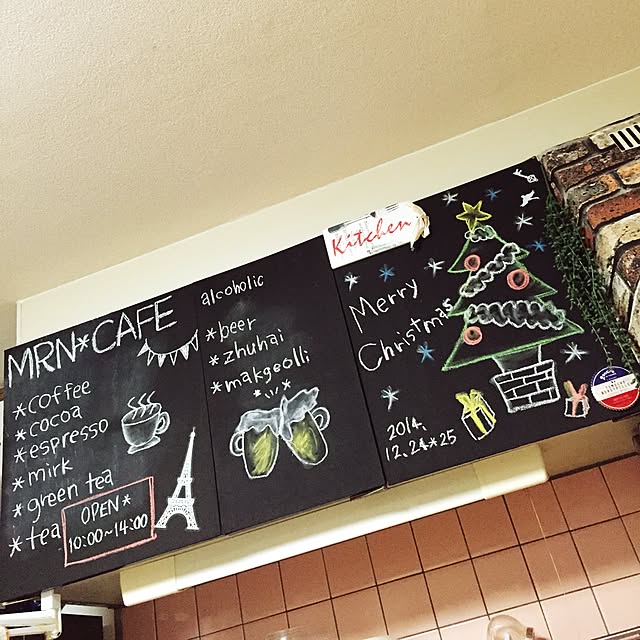 MRN*CAFE
*coffee
*cocoa
*espresso
*mirk
*green tea
*tea
OPEN*
10:00~14:00
alcoholic
*beer
*zhuhai
*makgeolli
Kitchen
Merry
Christmas
2014.
12.24*25